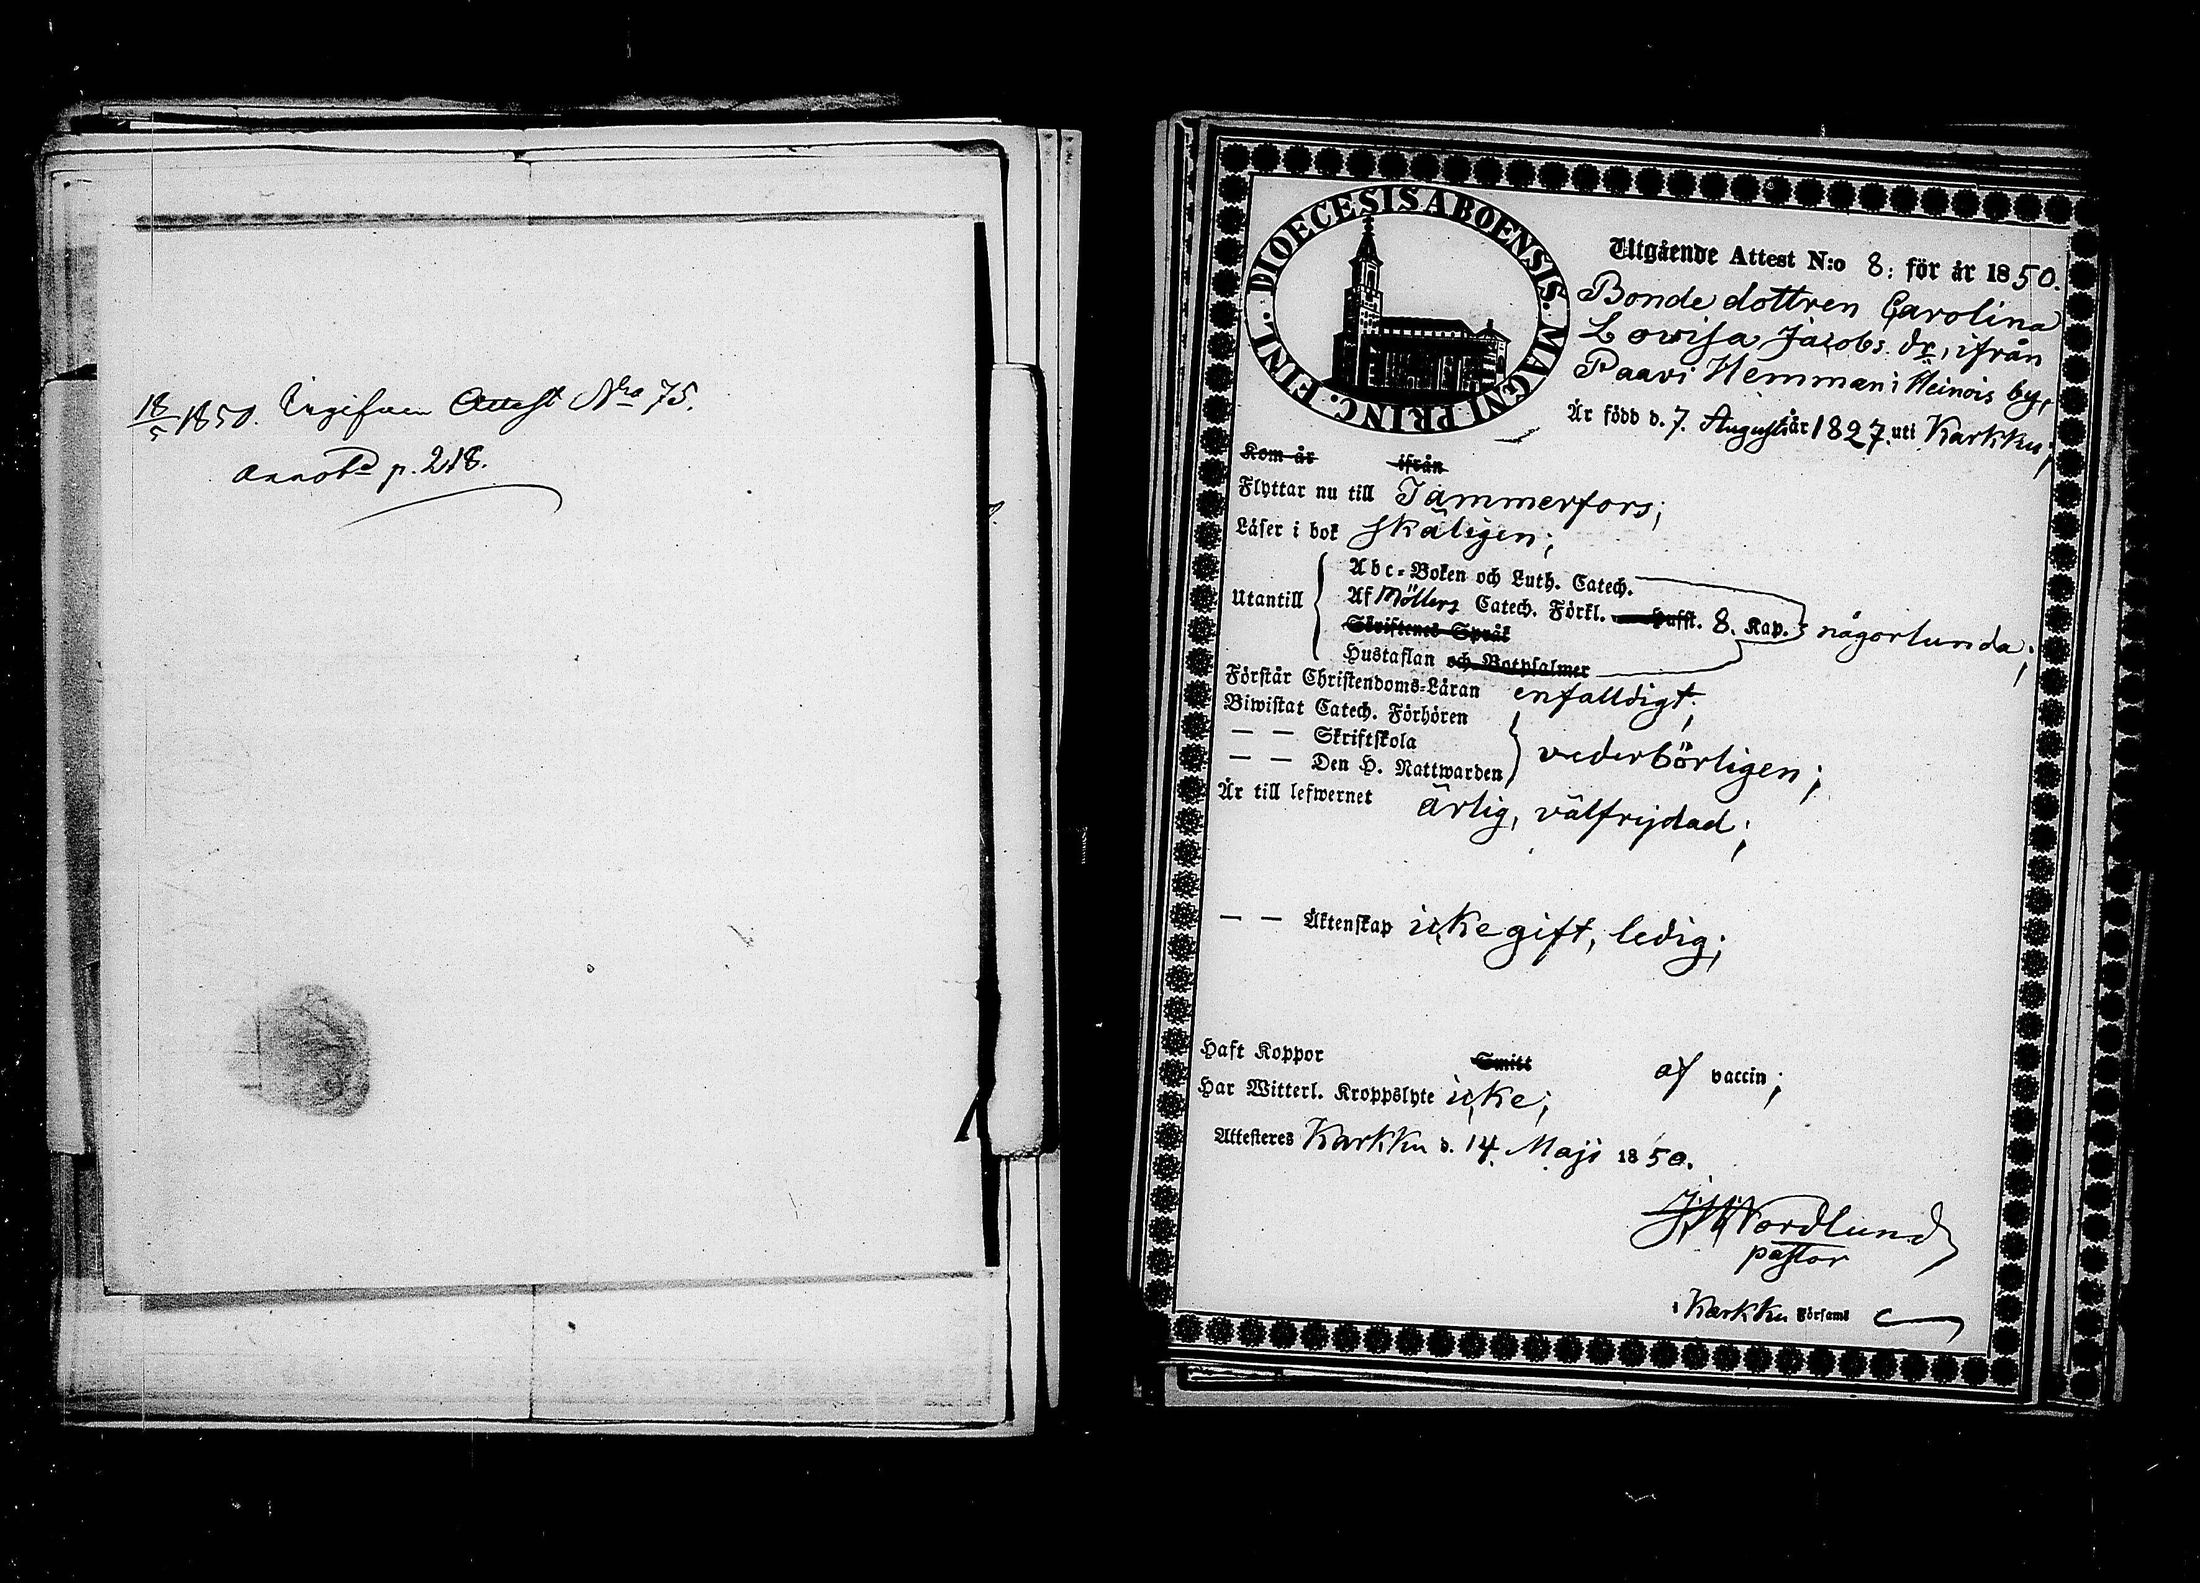 18/5 1850. Ingifven Attest N:ro 75.
annot:d p. 218.
DIOECESIS ABOENSIS. MAGNI PRINC. FINL.
Utgående Attest N:o 8: för år 1850.
Bonde dottren Carolina
Lowisa Jacobs dr, ifrån
Paavi Hemman i Heinois by,
Är född d. 7. Augusti år 1827. uti Karkku;
Kom år ifrån
Flyttar nu till Tammerfors;
Läser i bok skäligen;
Abc-Boken och Luth. Catech.
Utantill Af Möllers Catech. Förkl. Hufst. 8. Kap. någorlunda;
Skriftenes Språk
Hustaflan och Botpsalmer
Förstår Christendoms-Läran enfalldigt;
Biwistat Catech. Förhören
— — Skriftskola
— — Den H. Nattwarden vederbörligen;
Är till lefwernet ärlig, välfrijdad;
— — Äktenskap icke gift, ledig;
Haft Koppor Smitt af vaccin;
Har Witterl. Kroppslyte icke;
Attesteres Karkku d. 14. Maji 1850.
Nordlund
pastor
i Karkku Församl